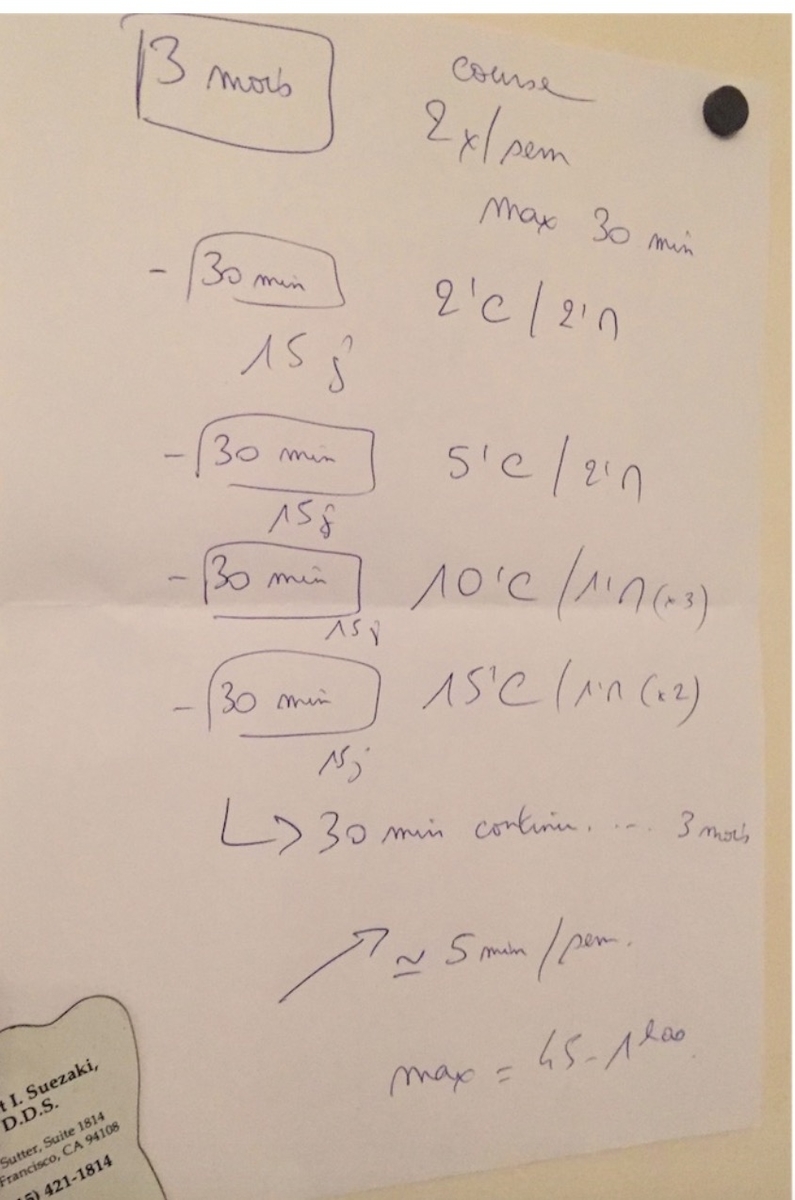 3 mois
course
2x/sem
max 30 min
- 30 min 2'C / 2'M
15 j
- 30 min 5'C / 2'M
15 j
- 30 min 10'C / 1'M (x3)
15 j
- 30 min 15'C / 1'M (x2)
15 j
↳ 30 min continu. ... 3 mois
↗ ≃ 5 min / sem.
max = 45 - 1h
t I. Suezaki,
D.D.S.
Sutter, Suite 1814
Francisco, CA 94108
5) 421-1814